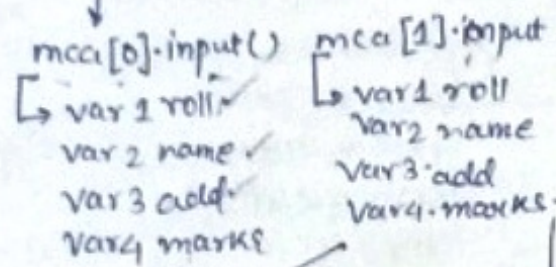 mca[0].input()
↳ var 1 roll
var 2 name
var 3 add
var4 marks
mca[1].input
↳ var1 roll
var2 name
var3.add
var4.marks.